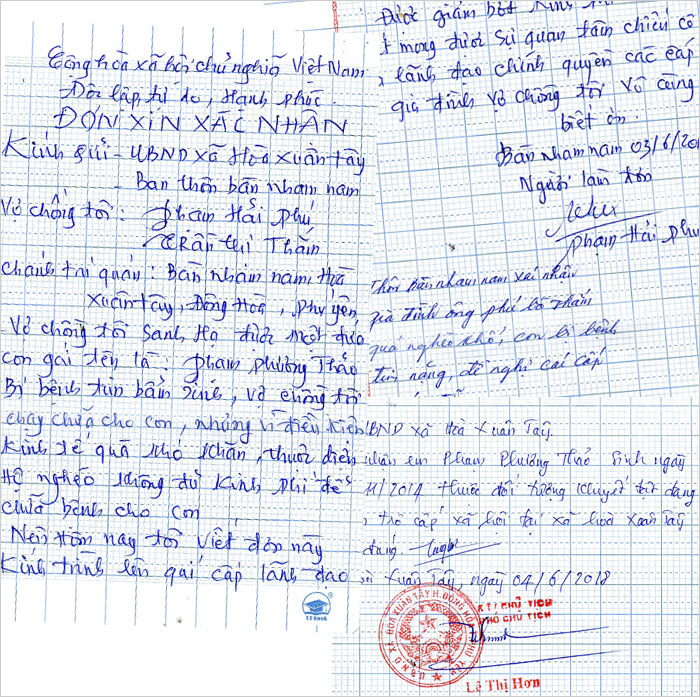 Cộng hòa xã hội chủ nghĩa Việt Nam
Độc lập, tự do, Hạnh phúc.
ĐƠN XIN XÁC NHẬN
Kính gửi - UBND xã Hòa xuân tây
- Ban thôn bàn nham nam
Vợ chồng tôi: Phạm Hải Phú
Trần thị Thắm
chánh tại quán: Bàn nham nam, Hoà
xuân tây, Đông Hoà, phú yên
Vợ chồng tôi sanh hạ được một đứa
con gái tên là: phạm phương Thảo
Bị bệnh tim bẩm sinh, vợ chồng tôi
chạy chữa cho con, nhưng vì điều kiện
Kinh tế quá khó khăn, thuộc diện
Hộ nghèo không đủ kinh phí để
chữa bệnh cho con
Nên hôm nay tôi viết đơn này
Kính trình lên quí cấp lãnh đạo
KT Book
Được giảm bớt
mong được sự quan tâm chiếu cố
lãnh đạo chính quyền các cấp
gia đình vợ chồng tôi vô cùng
biết ơn.
Bàn nham nam 03/6/201
Người làm đơn
phạm Hải Phú
Thôn Bàn nham nam xác nhận
gia đình ông phú bà thắm
quá nghèo khổ, con bị bệnh
tim nặng, đề nghị các cấp
BND xã Hoà Xuân Tây.
nhận em Phạm Phương Thảo sinh ngày
11/2014 thuộc đối tượng khuyết tật đang
trợ cấp xã hội tại xã hoà xuân Tây
đúng.
Xuân Tây, ngày 04/6/2018
U.B.N.D XÃ HÒA XUÂN TÂY H. ĐÔNG HÒA
KT/ CHỦ TỊCH
PHÓ CHỦ TỊCH
Lê Thị Hơn